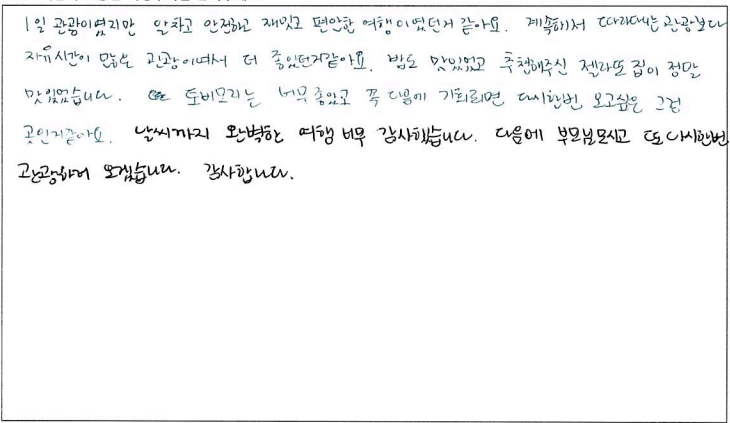 1일 관광이였지만 알차고 안전하고 재밌고 편안한 여행이였던거 같아요. 계속해서 따라다니는 관광보다
자유시간이 많은 관광이여서 더 좋았던거같아요. 밥도 맛있었고 추천해주신 젤라또 집이 정말
맛있었습니다. 토비모리는 너무좋았고 꼭 다음에 기회되면 다시한번 오고싶은 그런
곳인거같아요. 날씨까지 완벽한 여행 너무 감사했습니다. 다음에 부모님모시고 또 다시한번
관광하러 오겠습니다. 감사합니다.